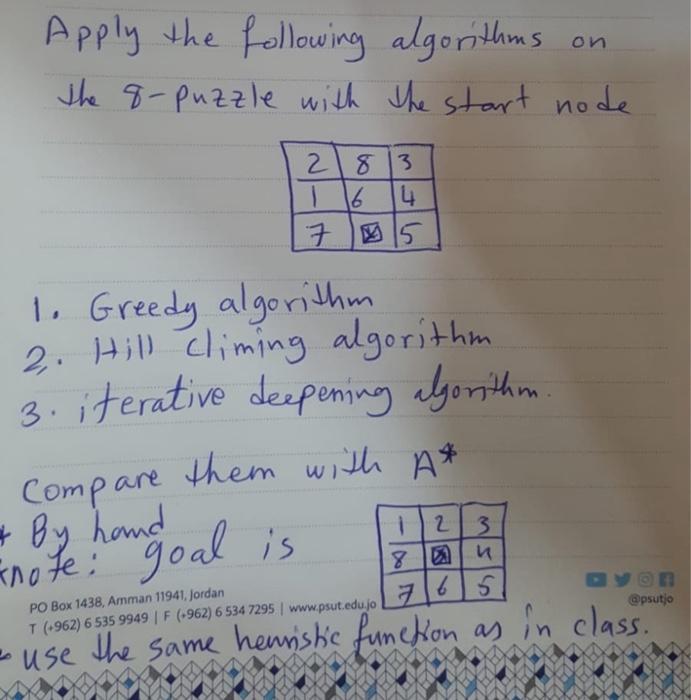 Apply the following algorithms on
the 8-puzzle with the start node
2 8 3
1 6 4
7 5
1. Greedy algorithm
2. Hill climing algorithm
3. iterative deepening algorithm.
Compare them with A*
* By hand
*note: goal is
1 2 3
8 4
7 6 5
PO Box 1438, Amman 11941, Jordan
T (+962) 6 535 9949 | F (+962) 6 534 7295 | www.psut.edu.jo
@psutjo
- use the same heuristic function as in class.